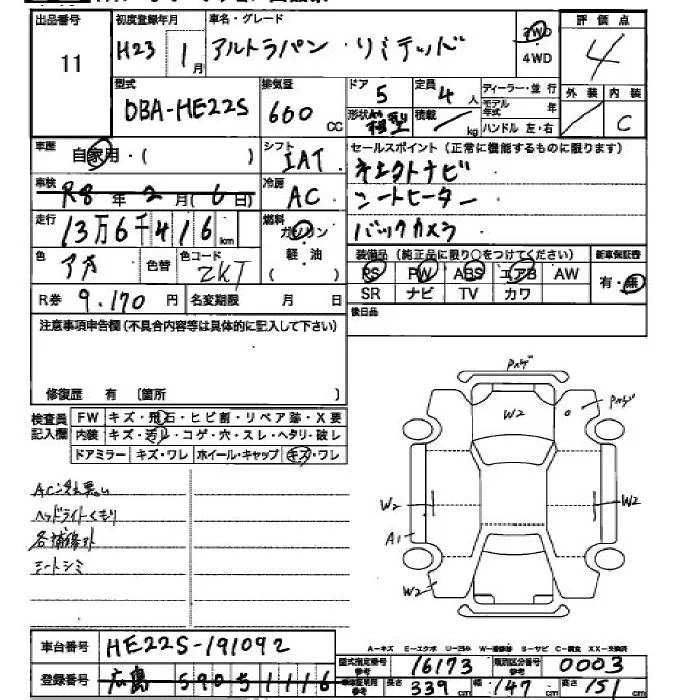 出品番号 初度登録年月 車名・グレード 評価点
11 H23 1月 アルトラパン・リミテッド 2WD 4WD 4
型式 排気量 ドア 定員 ディーラー・並行 外装 内装
DBA-HE22S 660 CC 5 4人 モデル年式 年 C
形状 積載 kg ハンドル 左・右
車歴 自家用・( ) シフト IAT セールスポイント(正常に機能するものに限ります)
車検 R8年2月(6日) 冷房 AC
ネエクトナビ
シートヒーター
バックカメラ
走行 13万6千416km 燃料 ガソリン 軽油
色 色替 色コード ZKT 装備品(純正品に限り○をつけてください) 新車保証書
PS PW ABS エアB AW 有・無
SR ナビ TV カワ
R券 9,170円 名変期限 月 日
後日品
注意事項申告欄(不具合内容等は具体的に記入して下さい)
修復歴 有 〔箇所 〕
検査員記入欄 FW キズ・飛石・ヒビ割・リペア跡・X要
内装 キズ・汚レ・コゲ・穴・スレ・ヘタリ・破レ
ドアミラー キズ・ワレ ホイール・キャップ キズ・ワレ
ヘッドライトくもり
シートシミ
W2
W2
W2
A1
W2
A-キズ E-エクボ U-凹み W-補修跡 S-サビ C-腐食 XX-交換済
車台番号 HE22S-191092
型式指定番号参考 16173 類別区分番号参考 0003
登録番号 広島 590 5 1116
車体寸法用参考 長さ 339cm 幅 147cm 高さ 151cm